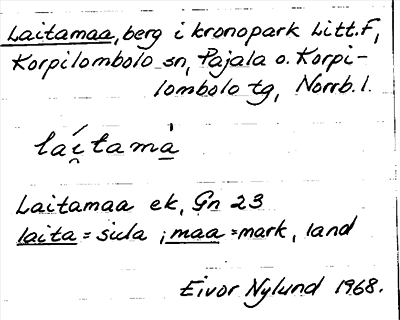 Laitamaa, berg i kronopark Litt. F,
Korpilombolo sn, Pajala o. Korpi-
lombolo tg, Norrb. l.
laí̯tamà̱
Laitamaa ek, Gn 23
laita = sida ; maa = mark, land
Eivor Nylund 1968.